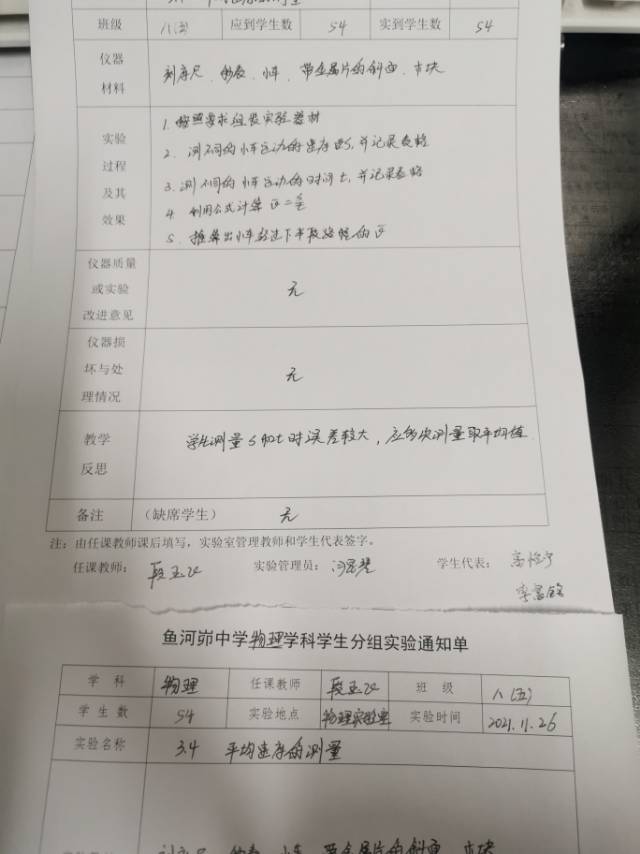 班级 八(五) 应到学生数 54 实到学生数 54
仪器材料 刻度尺、钟表、小车、带金属片的斜面、木块
实验过程及其效果
1. 按照要求组装实验器材
2. 测不同的小车运动的路程S,并记录表格
3. 测不同的小车运动的时间t,并记录表格
4. 利用公式计算
5. 推算出小车经过下半段路程的v̄
仪器质量或实验改进意见 无
仪器损坏与处理情况 无
教学反思 学生测量s和t时误差较大,应多次测量取平均值
备注 (缺席学生) 无
注:由任课教师课后填写,实验室管理教师和学生代表签字。
任课教师: 实验管理员: 学生代表:
鱼河峁中学物理学科学生分组实验通知单
学科 物理 任课教师 班级 八(五)
学生数 54 实验地点 物理实验室 实验时间 2021.11.26
实验名称 3.4 平均速度的测量
刻度尺、钟表、小车、带金属片的斜面、木块